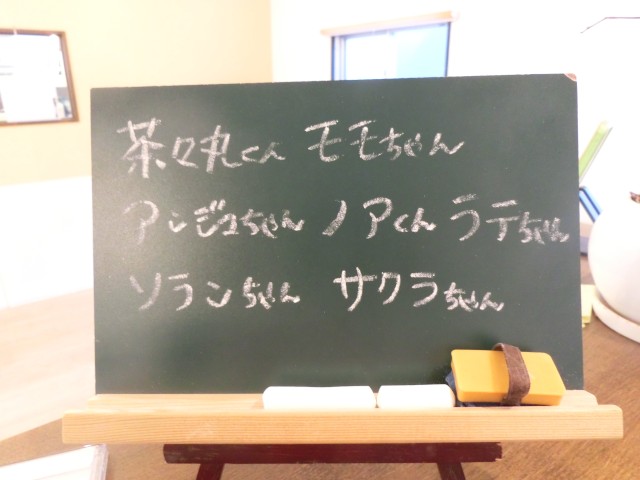 茶々丸くん モモちゃん
アンジュちゃん ノアくん ラテちゃん
ソランちゃん サクラちゃん